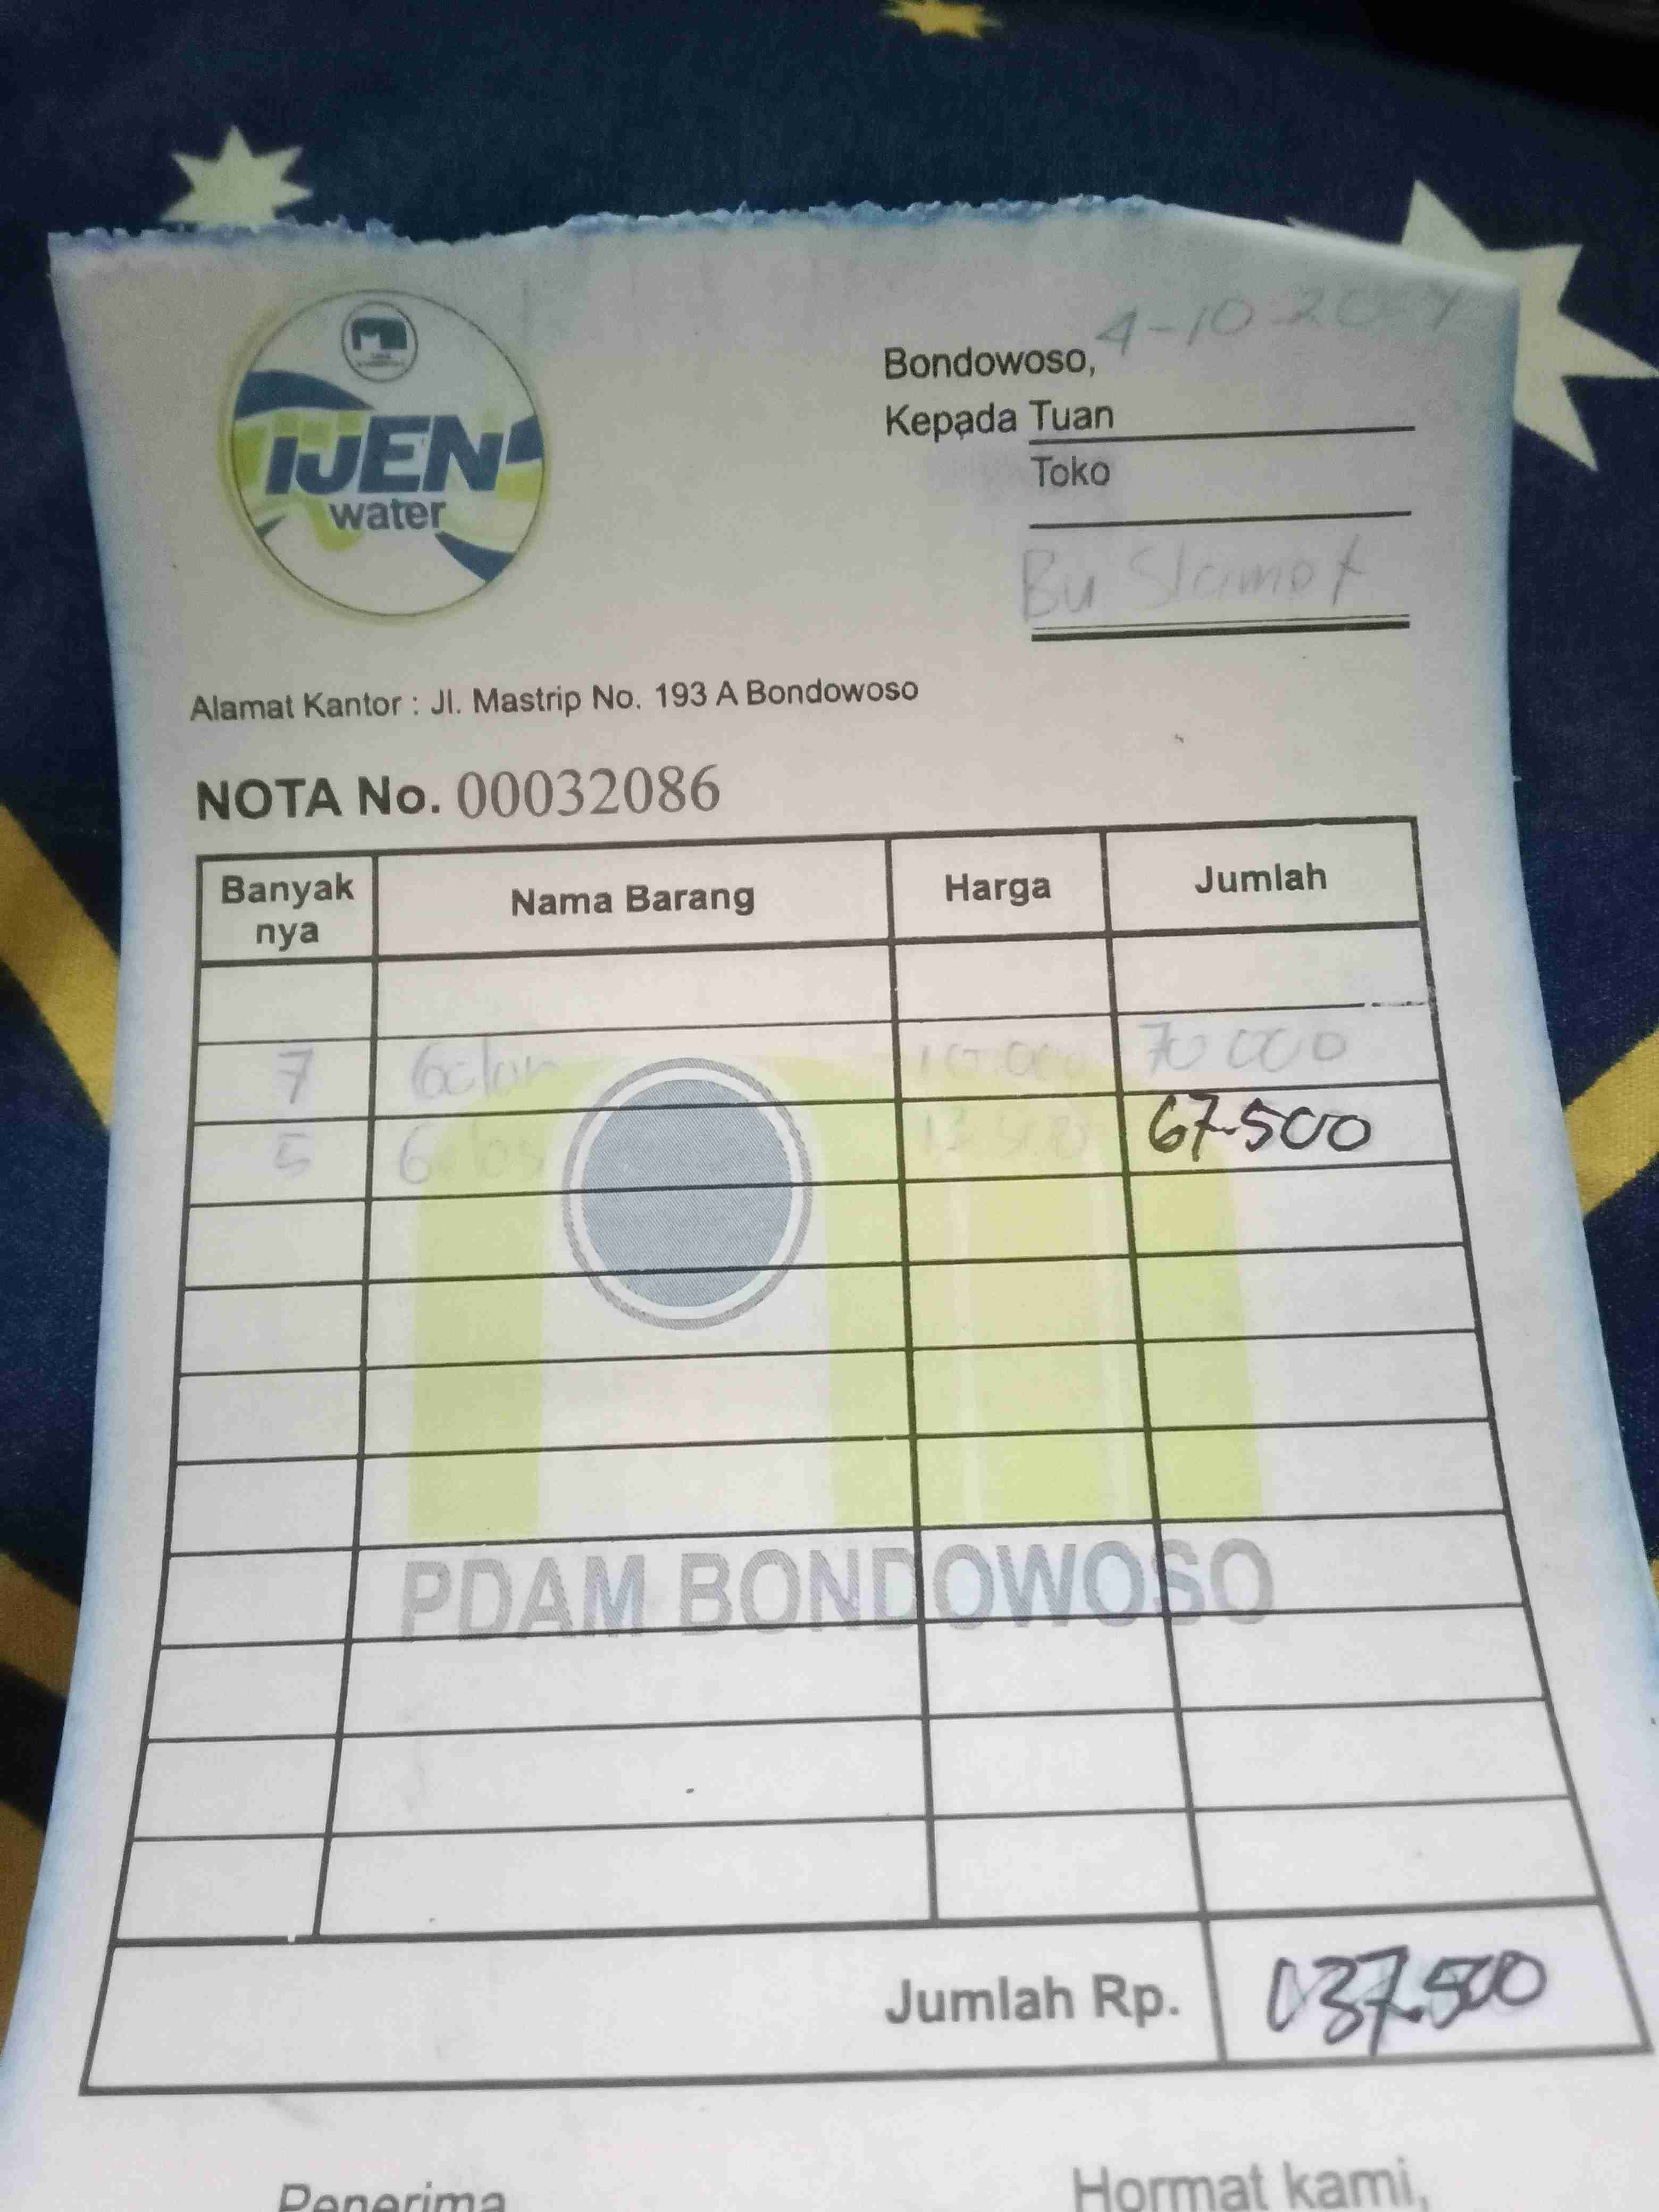 IJEN
water
Bondowoso, 4-10-20
Kepada Tuan
Toko
Bu Slamet
Alamat Kantor : Jl. Mastrip No. 193 A Bondowoso
NOTA No. 00032086
Banyak nya Nama Barang Harga Jumlah
7 Galon 10.000 70 000
5 Gelas 13 500 67.500
PDAM BONDOWOSO
Jumlah Rp. 137.500
Penerima Hormat kami,